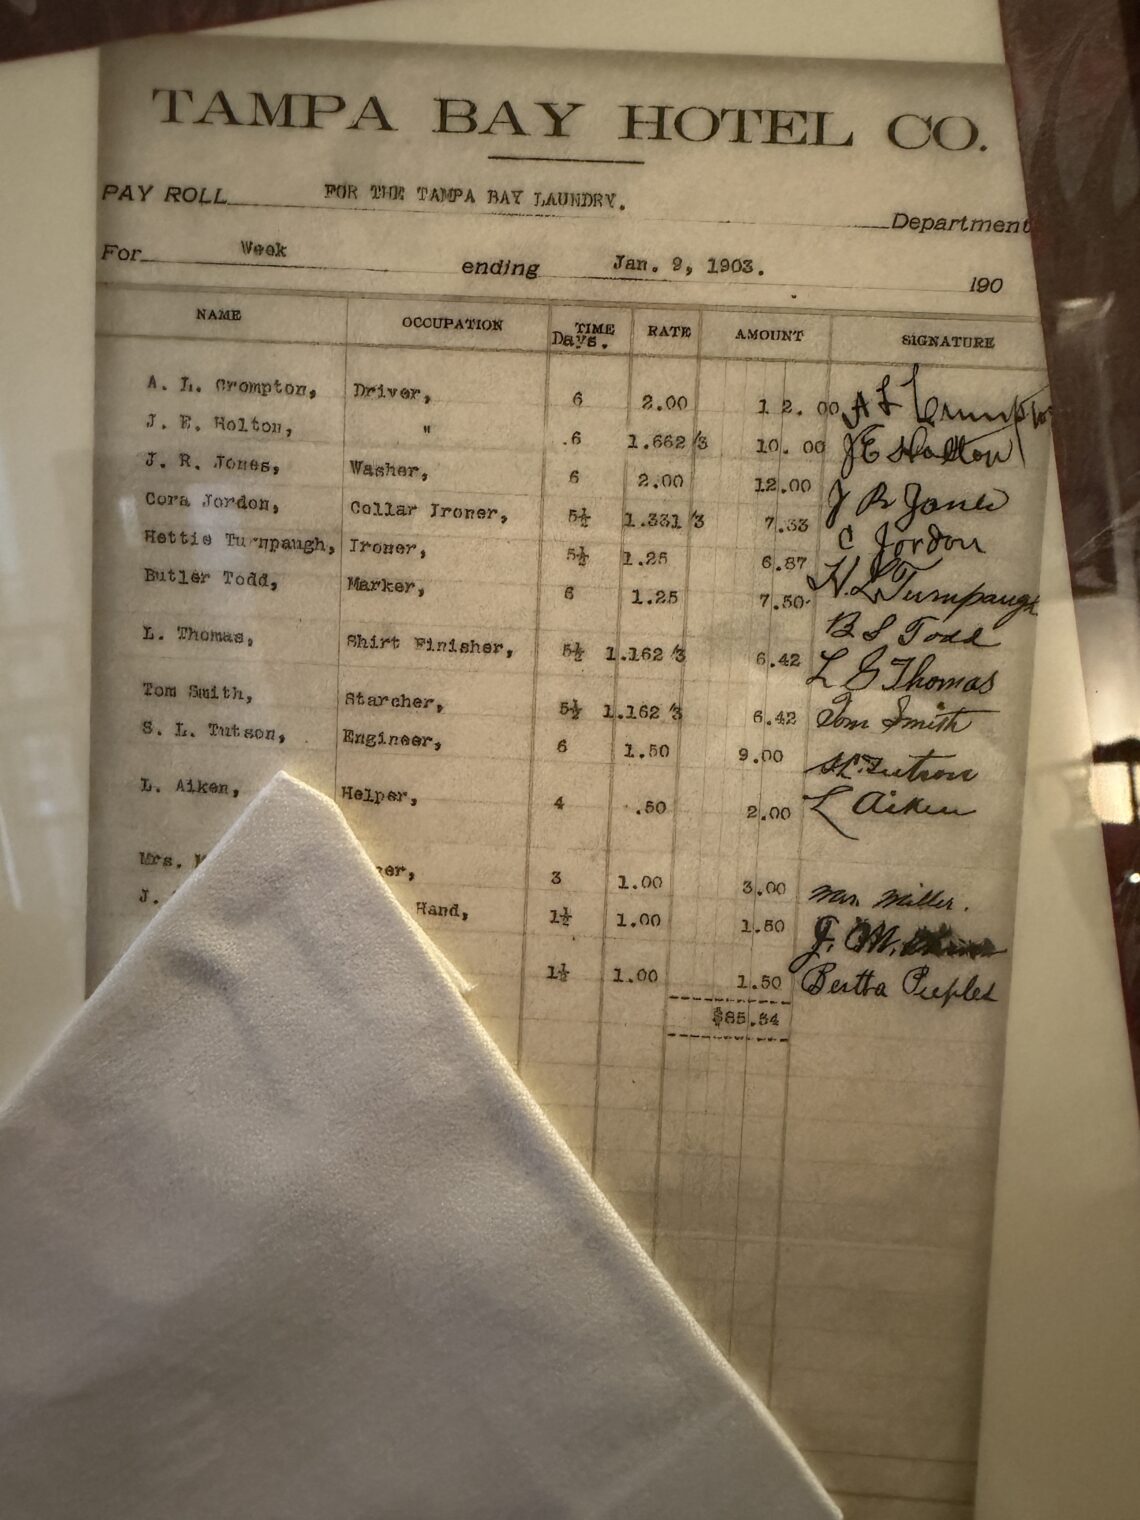 TAMPA BAY HOTEL CO.
PAY ROLL FOR THE TAMPA BAY LAUNDRY. Department
For Week ending Jan. 9, 1903. 190
NAME OCCUPATION TIME Days. RATE AMOUNT SIGNATURE
A. L. Crompton, Driver, 6 2.00 12.00 A L Crompton
J. E. Holton, " .6 1.662/3 10.00 J E Holton
J. R. Jones, Washer, 6 2.00 12.00 J R Jones
Cora Jordon, Collar Ironer, 5½ 1.331/3 7.33 C Jordon
Hettie Turnpaugh, Ironer, 5½ 1.25 6.87 H. L Turnpaugh
Butler Todd, Marker, 6 1.25 7.50 B S Todd
L. Thomas, Shirt Finisher, 5½ 1.162/3 6.42 L G Thomas
Tom Smith, Starcher, 5½ 1.162/3 6.42 Tom Smith
S. L. Tutson, Engineer, 6 1.50 9.00 S L Tutson
L. Aiken, Helper, 4 .50 2.00 L Aiken
Mrs. 3 1.00 3.00 Mrs. Miller.
J. Hand, 1½ 1.00 1.50 J. M.
1½ 1.00 1.50 Bertha Peeples
$85.54